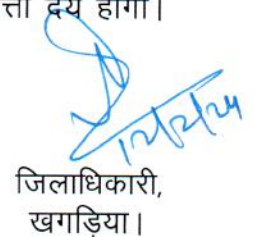 देय होगा।
12/2/24
जिलाधिकारी,
खगड़िया।